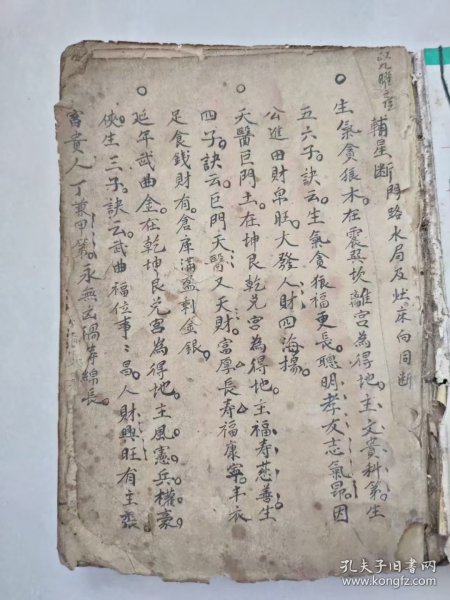 輔星断 門路水局及灶床向同断
生氣貪狼木。在震巽坎離宮為得地。主文貴科第。生
五六子。訣云。生氣貪狼福更長。聰明孝友志氣昂。因
公進田財帛旺。大發人財四海揚。
天醫巨門土。在坤艮乾兑宮為得地。主福寿慈善。生
四子。訣云。巨門天醫又天財。富厚長寿福康寧。丰衣
足食錢財有。倉庫滿盈剩金銀。
延年武曲金。在乾坤艮兑宮為得地。主風憲兵權豪
俠。生三子。訣云。武曲福位事〻昌。人財興旺有主張。
富貴人丁兼甲第。永無凶禍寿綿長。
孔夫子旧书网
www.kongfz.com